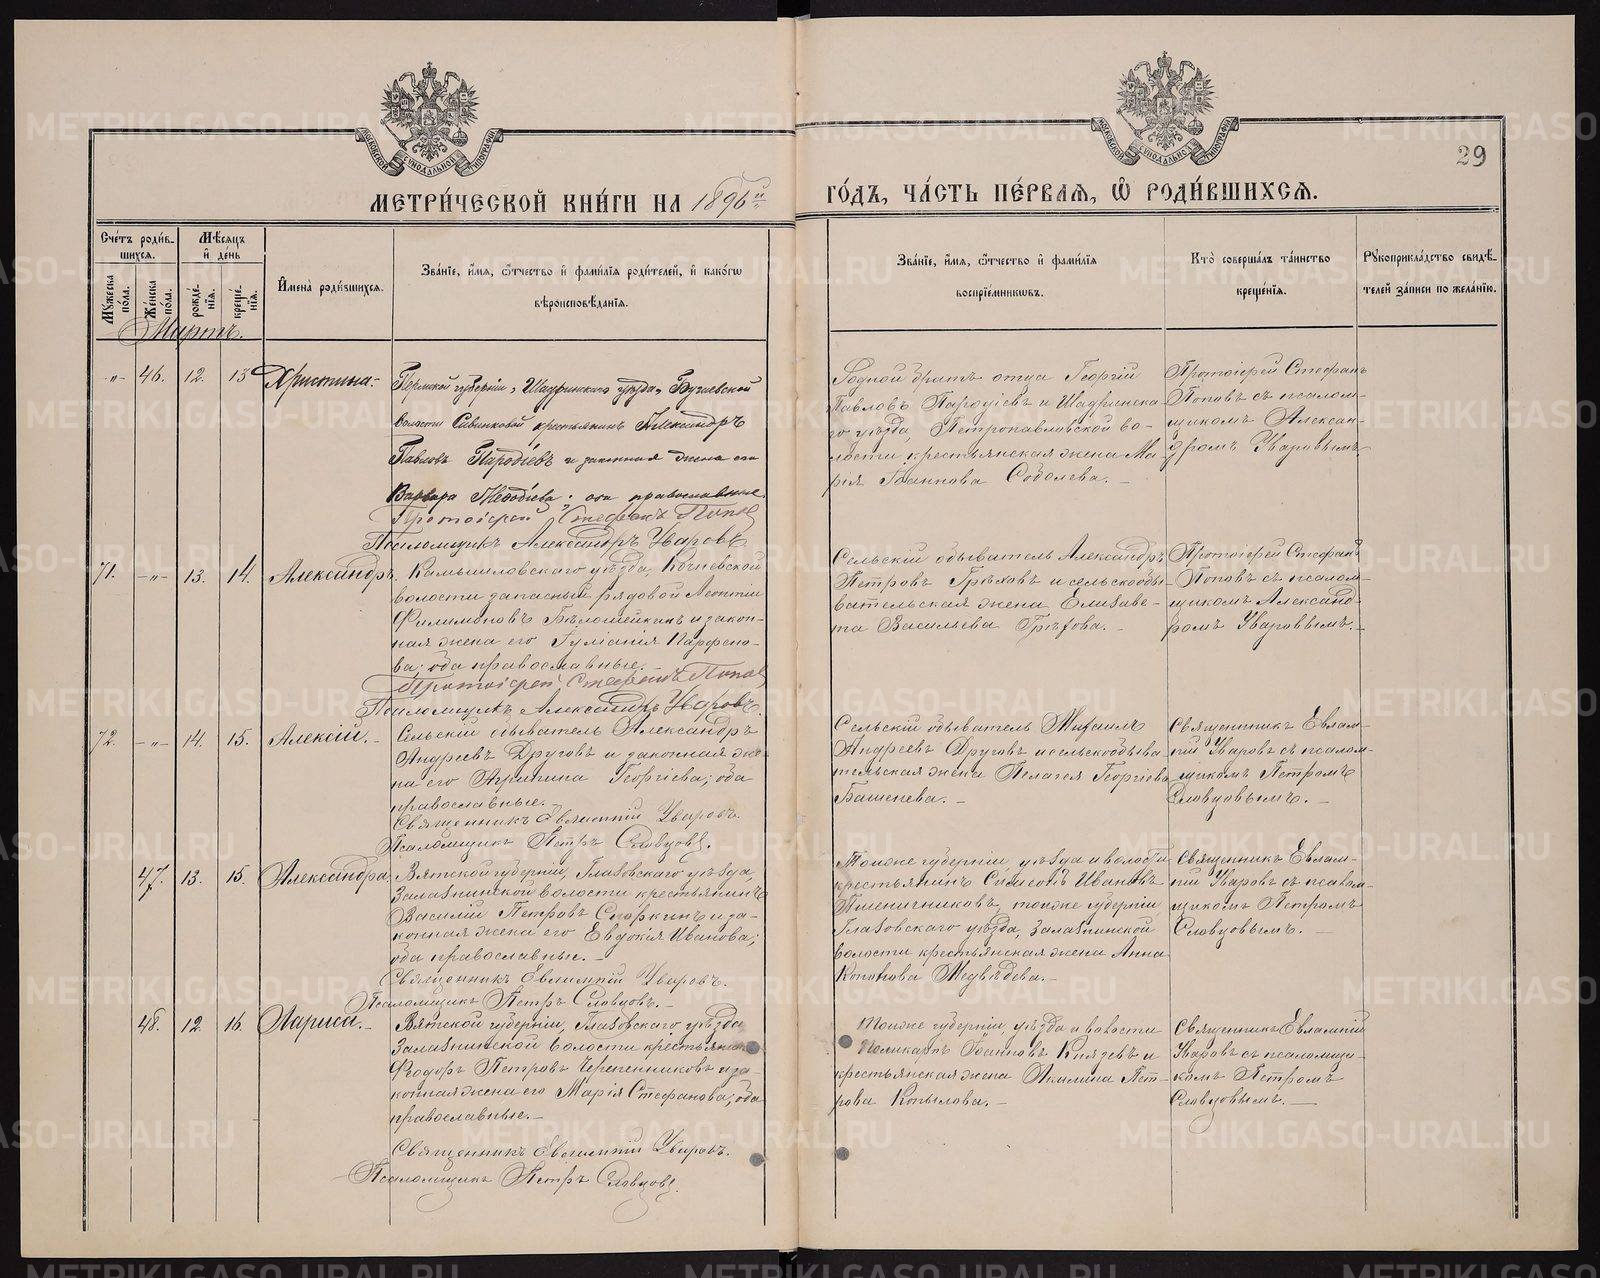 МОСКОВСКОЙ СѴНОДАЛЬНОЙ ТИПОГРАФІИ
МОСКОВСКОЙ СѴНОДАЛЬНОЙ ТИПОГРАФІИ
29
МЕТРИ́ЧЕСКОЙ КНИ́ГИ НА 1896й ГО́ДЪ, ЧА́СТЬ ПЕ́РВАЯ, Ѿ РОДИ́ВШИХСЯ.
Сче́тъ роди́в-
шихся.
Мꙋжеска по́ла.
Же́нска по́ла.
Мѣ́сяцъ
и́ де́нь
рожде́-нїя.
креще́-нїя.
И҆мена̀ роди́вшихся.
Зва́нїе, и҆́мя, ѻ҆́тчество и҆ фами́лїя роди́телей, и҆ како́гѡ
вѣроисповѣ́данїя.
Зва́нїе, и҆́мя, ѻ҆́тчество и҆ фами́лїя
воспрїе́мникѡвъ.
Кто̀ соверша́лъ та́инство
креще́нїя.
Рꙋкоприкла́дство свидѣ́-
телей за́писи по жела́нїю.
Мартъ.
-"- 46. 12. 13 Христина.-
Пермской губерніи, Шадринскаго уѣзда,
волости крестьянинъ Александръ
Павловъ Пародіевъ и законная жена его
Варвара оба православные.
Протоіерей Стефанъ Поповъ
Псаломщикъ Александръ Уваровъ
Родной братъ отца Георгій
Павловъ Пародіевъ и Шадринска-
го уѣзда, Петропавловской во-
лости крестьянская жена Ма-
рія Іоаннова Соболева.-
Протоіерей Стефанъ
Поповъ съ псалом-
щикомъ Алексан-
дромъ Уваровымъ.
71. -"- 13. 14. Александръ.
Камышловскаго уѣзда,
волости запасный рядовой Леонтій
Филимоновъ Бѣлошейкинъ и закон-
ная жена его Іуліанія Парфено-
ва; оба православные.-
Протоіерей Стефанъ Поповъ
Псаломщикъ Александръ Уваровъ.
Сельскій обыватель Александръ
Петровъ Грѣховъ и сельскообы-
вательская жена Елизаве-
та Васильева Грѣхова.-
Протоіерей Стефанъ
Поповъ съ псалом-
щикомъ Александ-
ромъ Уваровымъ.-
72. -"- 14. 15. Алексій.-
Сельскій обыватель Александръ
Андреевъ Друговъ и законная же-
на его Георгіева; оба
православные.-
Священникъ Евлампій Уваровъ.
Псаломщикъ Петръ Словцовъ.
Сельскій обыватель Михаилъ
Андреевъ Друговъ и сельскообыва
тельская жена Пелагея Георгіева
Башенева.-
Священникъ Евлам-
пій Уваровъ съ псалом-
щикомъ Петромъ
Словцовымъ.-
47. 13. 15. Александра.
Вятской губерніи, Глазовскаго уѣзда,
Залазнинской волости крестьянинъ
Василій Петровъ и за-
конная жена его Евдокія Иванова;
оба православные.-
Священникъ Евлампій Уваровъ.
Псаломщикъ Петръ Словцовъ.-
Тойже губерніи, уѣзда и волости
крестьянинъ Симеонъ Ивановъ
Пшеничниковъ, тойже губерніи
Глазовскаго уѣзда, Залазнинской
волости крестьянская жена Анна
Кононова Медвѣдева.-
Священникъ Евлам-
пій Уваровъ съ псалом-
щикомъ Петромъ
Словцовымъ.-
48. 12. 16. Лариса.-
Вятской губерніи, Глазовскаго уѣзда
Залазнинской волости крестьянинъ
Ѳеодоръ Петровъ Черепенниковъ и за-
конная жена его Марія Стефанова; оба
православные.-
Священникъ Евлампій Уваровъ.
Псаломщикъ Петръ Словцовъ.
Тойже губерніи, уѣзда и волости
Поликарпъ Іоанновъ Князевъ и
крестьянская жена Акилина Пет-
рова Копылова.-
Священникъ Евлампій
Уваровъ съ псаломщи-
комъ Петромъ
Словцовымъ.-
METRIKI.GASO-URAL.RU